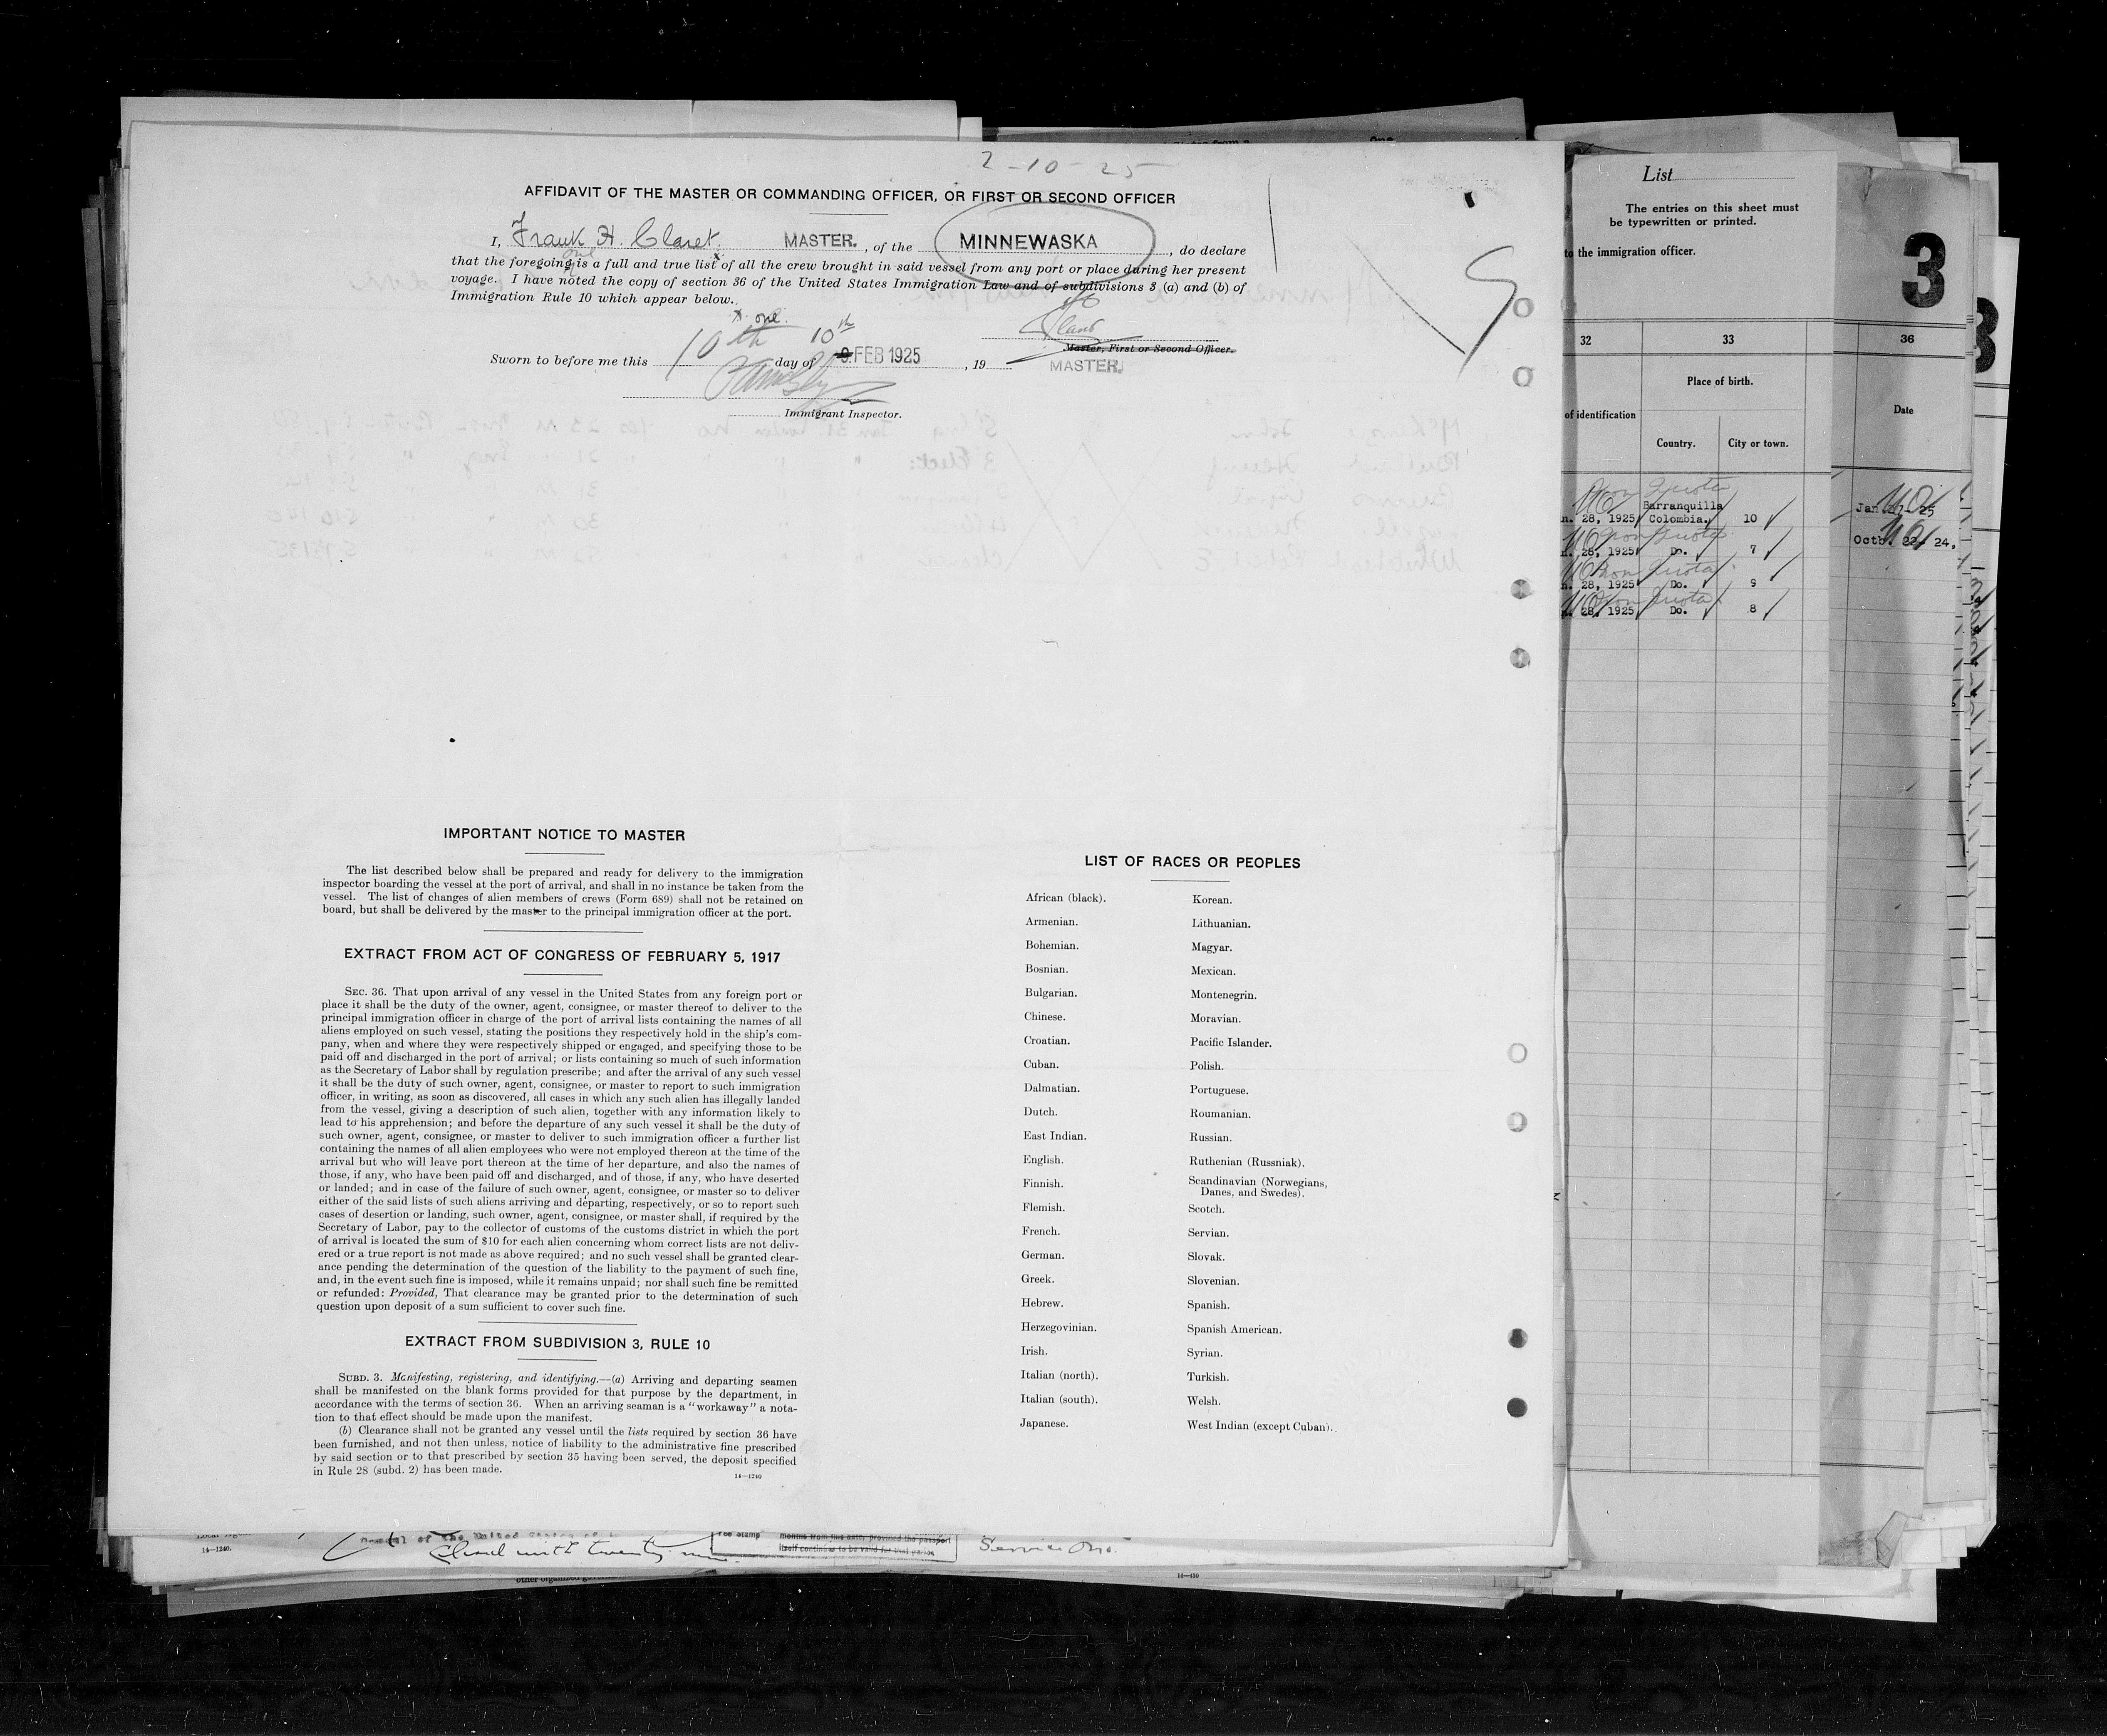 2-10-25
AFFIDAVIT OF THE MASTER OR COMMANDING OFFICER, OR FIRST OR SECOND OFFICER
I, Frank H. Claret, MASTER. , of the MINNEWASKA , do declare
one
that the foregoing is a full and true list of all the crew brought in said vessel from any port or place during her present
voyage. I have noted the copy of section 36 of the United States Immigration Law and of subdivisions 3 (a) and (b) of
Immigration Rule 10 which appear below.
x one.
Sworn to before me this 10th day of 10th 9 FEB 1925 , 19
Master, First or Second Officer.
MASTER.
Immigrant Inspector.
IMPORTANT NOTICE TO MASTER
The list described below shall be prepared and ready for delivery to the immigration
inspector boarding the vessel at the port of arrival, and shall in no instance be taken from the
vessel. The list of changes of alien members of crews (Form 689) shall not be retained on
board, but shall be delivered by the master to the principal immigration officer at the port.
EXTRACT FROM ACT OF CONGRESS OF FEBRUARY 5, 1917
SEC. 36. That upon arrival of any vessel in the United States from any foreign port or
place it shall be the duty of the owner, agent, consignee, or master thereof to deliver to the
principal immigration officer in charge of the port of arrival lists containing the names of all
aliens employed on such vessel, stating the positions they respectively hold in the ship's com-
pany, when and where they were respectively shipped or engaged, and specifying those to be
paid off and discharged in the port of arrival; or lists containing so much of such information
as the Secretary of Labor shall by regulation prescribe; and after the arrival of any such vessel
it shall be the duty of such owner, agent, consignee, or master to report to such immigration
officer, in writing, as soon as discovered, all cases in which any such alien has illegally landed
from the vessel, giving a description of such alien, together with any information likely to
lead to his apprehension; and before the departure of any such vessel it shall be the duty of
such owner, agent, consignee, or master to deliver to such immigration officer a further list
containing the names of all alien employees who were not employed thereon at the time of the
arrival but who will leave port thereon at the time of her departure, and also the names of
those, if any, who have been paid off and discharged, and of those, if any, who have deserted
or landed; and in case of the failure of such owner, agent, consignee, or master so to deliver
either of the said lists of such aliens arriving and departing, respectively, or so to report such
cases of desertion or landing, such owner, agent, consignee, or master shall, if required by the
Secretary of Labor, pay to the collector of customs of the customs district in which the port
of arrival is located the sum of $10 for each alien concerning whom correct lists are not deliv-
ered or a true report is not made as above required; and no such vessel shall be granted clear-
ance pending the determination of the question of the liability to the payment of such fine,
and, in the event such fine is imposed, while it remains unpaid; nor shall such fine be remitted
or refunded: Provided, That clearance may be granted prior to the determination of such
question upon deposit of a sum sufficient to cover such fine.
EXTRACT FROM SUBDIVISION 3, RULE 10
SUBD. 3. Manifesting, registering, and identifying.—(a) Arriving and departing seamen
shall be manifested on the blank forms provided for that purpose by the department, in
accordance with the terms of section 36. When an arriving seaman is a "workaway" a nota-
tion to that effect should be made upon the manifest.
(b) Clearance shall not be granted any vessel until the lists required by section 36 have
been furnished, and not then unless, notice of liability to the administrative fine prescribed
by said section or to that prescribed by section 35 having been served, the deposit specified
in Rule 28 (subd. 2) has been made.
14—1240
LIST OF RACES OR PEOPLES
African (black).
Armenian.
Bohemian.
Bosnian.
Bulgarian.
Chinese.
Croatian.
Cuban.
Dalmatian.
Dutch.
East Indian.
English.
Finnish.
Flemish.
French.
German.
Greek.
Hebrew.
Herzegovinian.
Irish.
Italian (north).
Italian (south).
Japanese.
Korean.
Lithuanian.
Magyar.
Mexican.
Montenegrin.
Moravian.
Pacific Islander.
Polish.
Portuguese.
Roumanian.
Russian.
Ruthenian (Russniak).
Scandinavian (Norwegians,
Danes, and Swedes).
Scotch.
Servian.
Slovak.
Slovenian.
Spanish.
Spanish American.
Syrian.
Turkish.
Welsh.
West Indian (except Cuban).
List
The entries on this sheet must
be typewritten or printed.
to the immigration officer.
3
32 33 36
Place of birth.
of identification Date
Country. City or town.
Non Quota
Barranquilla
28, 1925 Colombia. 10
Non Quota
28, 1925 Do. 7
Non Quota
28, 1925 Do. 9
Non Quota
28, 1925 Do. 8
Octb. 22- 24,
14—1240.
of the United States of
months from this date, provided the passport
itself continues to be valid for that period
14—430